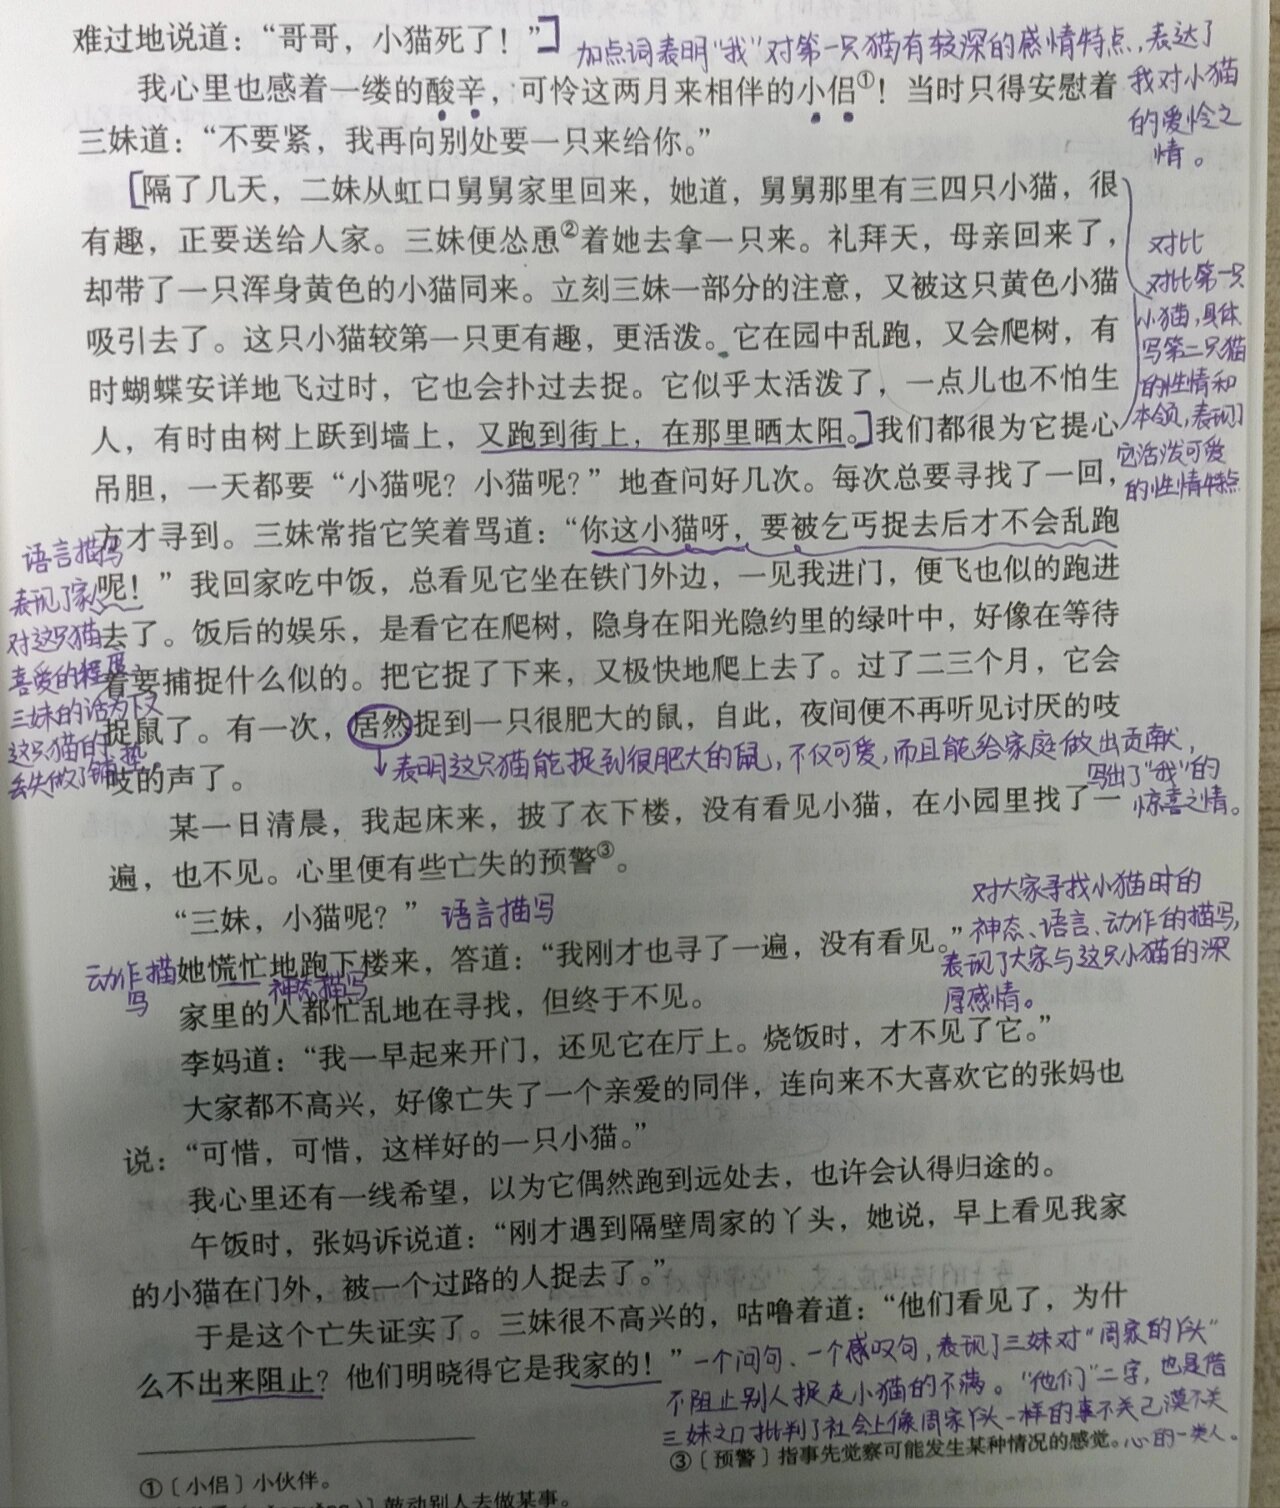 难过地说道：“哥哥，小猫死了！”
加点词表明“我”对第一只猫有较深的感情特点，表达了
我对小猫
的爱怜之
情。
我心里也感着一缕的酸辛，可怜这两月来相伴的小侣①！当时只得安慰着
三妹道：“不要紧，我再向别处要一只来给你。”
隔了几天，二妹从虹口舅舅家里回来，她道，舅舅那里有三四只小猫，很
有趣，正要送给人家。三妹便怂恿②着她去拿一只来。礼拜天，母亲回来了，
却带了一只浑身黄色的小猫同来。立刻三妹一部分的注意，又被这只黄色小猫
吸引去了。这只小猫较第一只更有趣，更活泼。它在园中乱跑，又会爬树，有
时蝴蝶安详地飞过时，它也会扑过去捉。它似乎太活泼了，一点儿也不怕生
人，有时由树上跃到墙上，又跑到街上，在那里晒太阳。我们都很为它提心
对比
对比第一只
小猫，具体
写第二只猫
的性情和
本领，表现了
它活泼可爱
的性情特点
吊胆，一天都要“小猫呢？小猫呢？”地查问好几次。每次总要寻找了一回，
方才寻到。三妹常指它笑着骂道：“你这小猫呀，要被乞丐捉去后才不会乱跑
呢！”我回家吃中饭，总看见它坐在铁门外边，一见我进门，便飞也似的跑进
去了。饭后的娱乐，是看它在爬树，隐身在阳光隐约里的绿叶中，好像在等待
着要捕捉什么似的。把它捉了下来，又极快地爬上去了。过了二三个月，它会
捉鼠了。有一次，居然捉到一只很肥大的鼠，自此，夜间便不再听见讨厌的吱
吱的声了。
语言描写
表现了家人
对这只猫
喜爱的程度
三妹的话为下文
这只猫的
丢失做了铺垫。
表明这只猫能捉到很肥大的鼠，不仅可爱，而且能给家庭做出贡献，
写出了“我”的
惊喜之情。
某一日清晨，我起床来，披了衣下楼，没有看见小猫，在小园里找了一
遍，也不见。心里便有些亡失的预警③。
“三妹，小猫呢？”
语言描写
她慌忙地跑下楼来，答道：“我刚才也寻了一遍，没有看见。”
动作描
写
神态描写
对大家寻找小猫时的
神态、语言、动作的描写，
表现了大家与这只小猫的深
厚感情。
家里的人都忙乱地在寻找，但终于不见。
李妈道：“我一早起来开门，还见它在厅上。烧饭时，才不见了它。”
大家都不高兴，好像亡失了一个亲爱的同伴，连向来不大喜欢它的张妈也
说：“可惜，可惜，这样好的一只小猫。”
我心里还有一线希望，以为它偶然跑到远处去，也许会认得归途的。
午饭时，张妈诉说道：“刚才遇到隔壁周家的丫头，她说，早上看见我家
的小猫在门外，被一个过路的人捉去了。”
于是这个亡失证实了。三妹很不高兴的，咕噜着道：“他们看见了，为什
么不出来阻止？他们明晓得它是我家的！”
一个问句、一个感叹句，表现了三妹对“周家的丫头”
不阻止别人捉走小猫的不满。“他们”二字，也是借
三妹之口批判了社会上像周家丫头一样的事不关己漠不关
心的一类人。
①〔小侣〕小伙伴。
鼓动别人去做某事。
③〔预警〕指事先觉察可能发生某种情况的感觉。